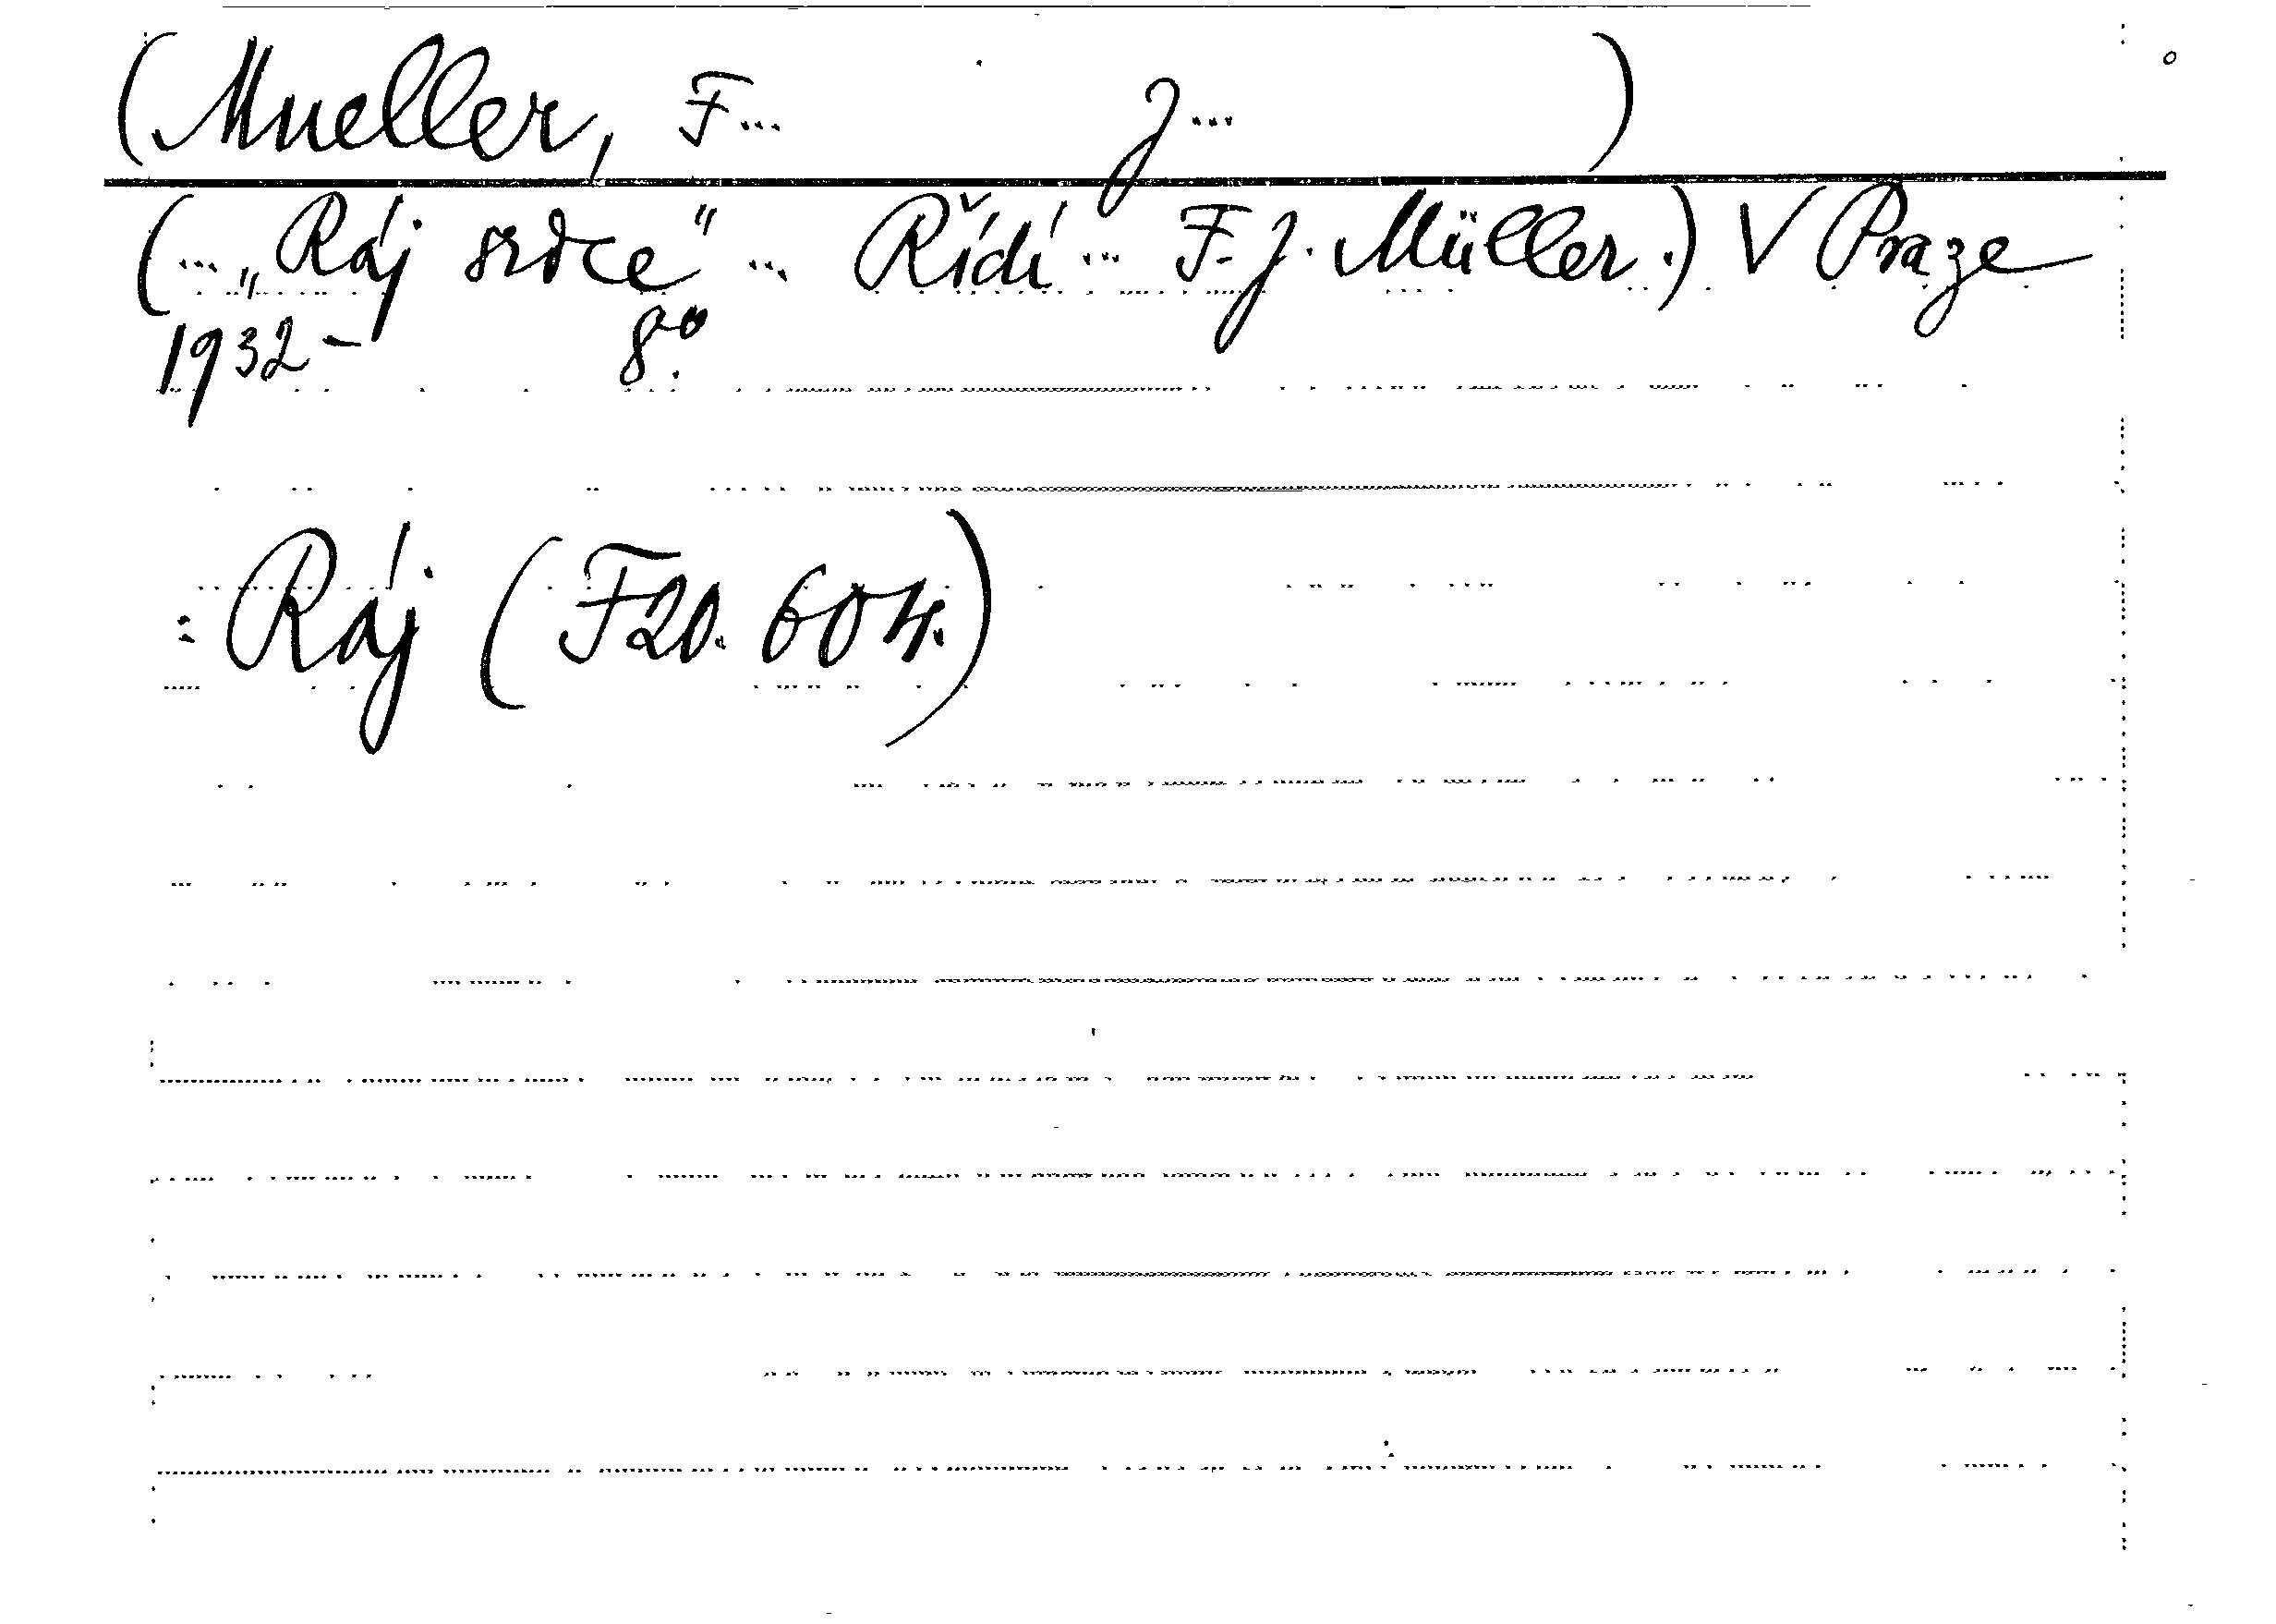 (Mueller, F... J... )
(... „Ráj srdce“ ... Řídí ... F. J. Müller.) V Praze
1932- 8°.
: Ráj (F20.604.)